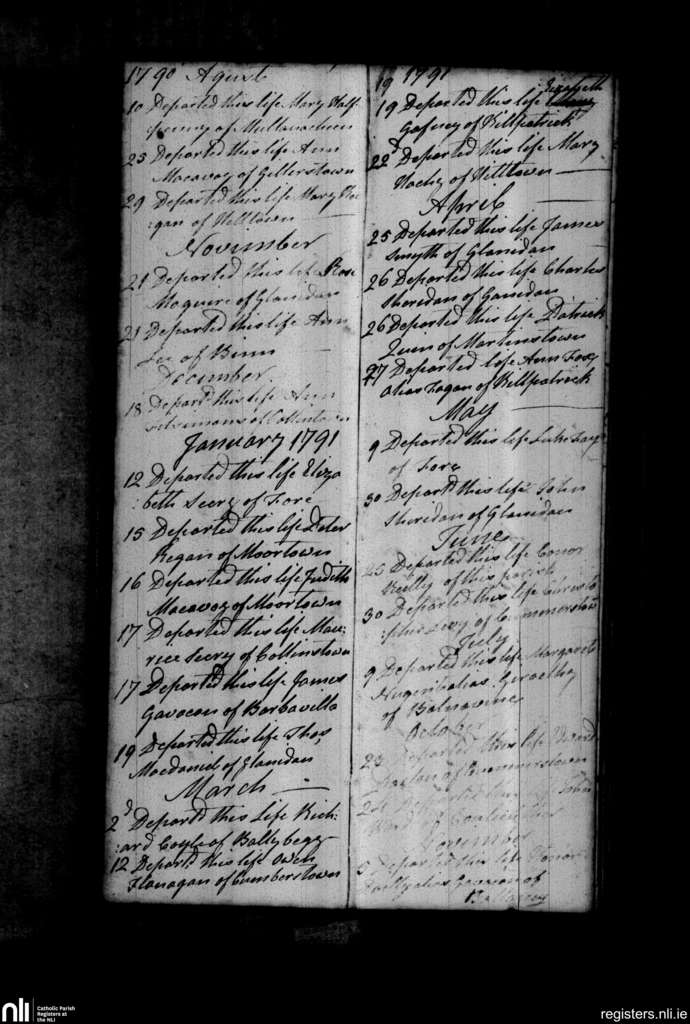 1790 Agust
10 Departed this life Mary Half
:penny of
23 Departed this life Ann
Macavoy of Gillerstown
29 Departed this life Mary
:gan of Hilltown
Novimber
21 Departed this life Rose
Maguire of Glanidan
21 Departed this life Ann
Lee of Binn
December
18 Depart:d this life Ann
of
January 1791
12 Departed this life Eliza
:beth Seery of Fore
15 Departed this life Peter
Kegan of Moortown
16 Departed this life Judith
Macavoy of Moortown
17 Departed this life Mau:
rice Seery of Collinstown
17 Departed this life James
Gavacan of Barbavilla
19 Departed this life Thos
Macdaniel of Glanidan
March
2d Departd this Life Rich:
:ard Coyle of Ballybegg
12 Departd this life Owen
Flanagan of Cumberstown
19 1791
Elizabeth
19 Departed this life
Gafney of Killpatrick
22d Departed this life Mary
of Hilltown
April
25 Departed this life James
Smyth of Glanidan
26 Departed this life Charles
Sheridan of Ganidan
26 Departed this life Patrick
Quin of Martinstown
27 Departed life Ann Foxy
Alias Fagan of Killpatrick
May
9 Departed this life Luke Fay
of Fore
30 Departd this life John
Sheridan of Glanidan
June
25 Departed this life Conor
Reilly of this parish
30 Departed this life
of Cummerstown
July
9 Departed this life Margaret
alias Geraethy
of
October
23 Departed this life
of Cummerstown
24 Departed this life John
Ward of
November
5 Departed this life Honor
alias Gannon of
nli
Catholic Parish
Registers at
the NLI
registers.nli.ie